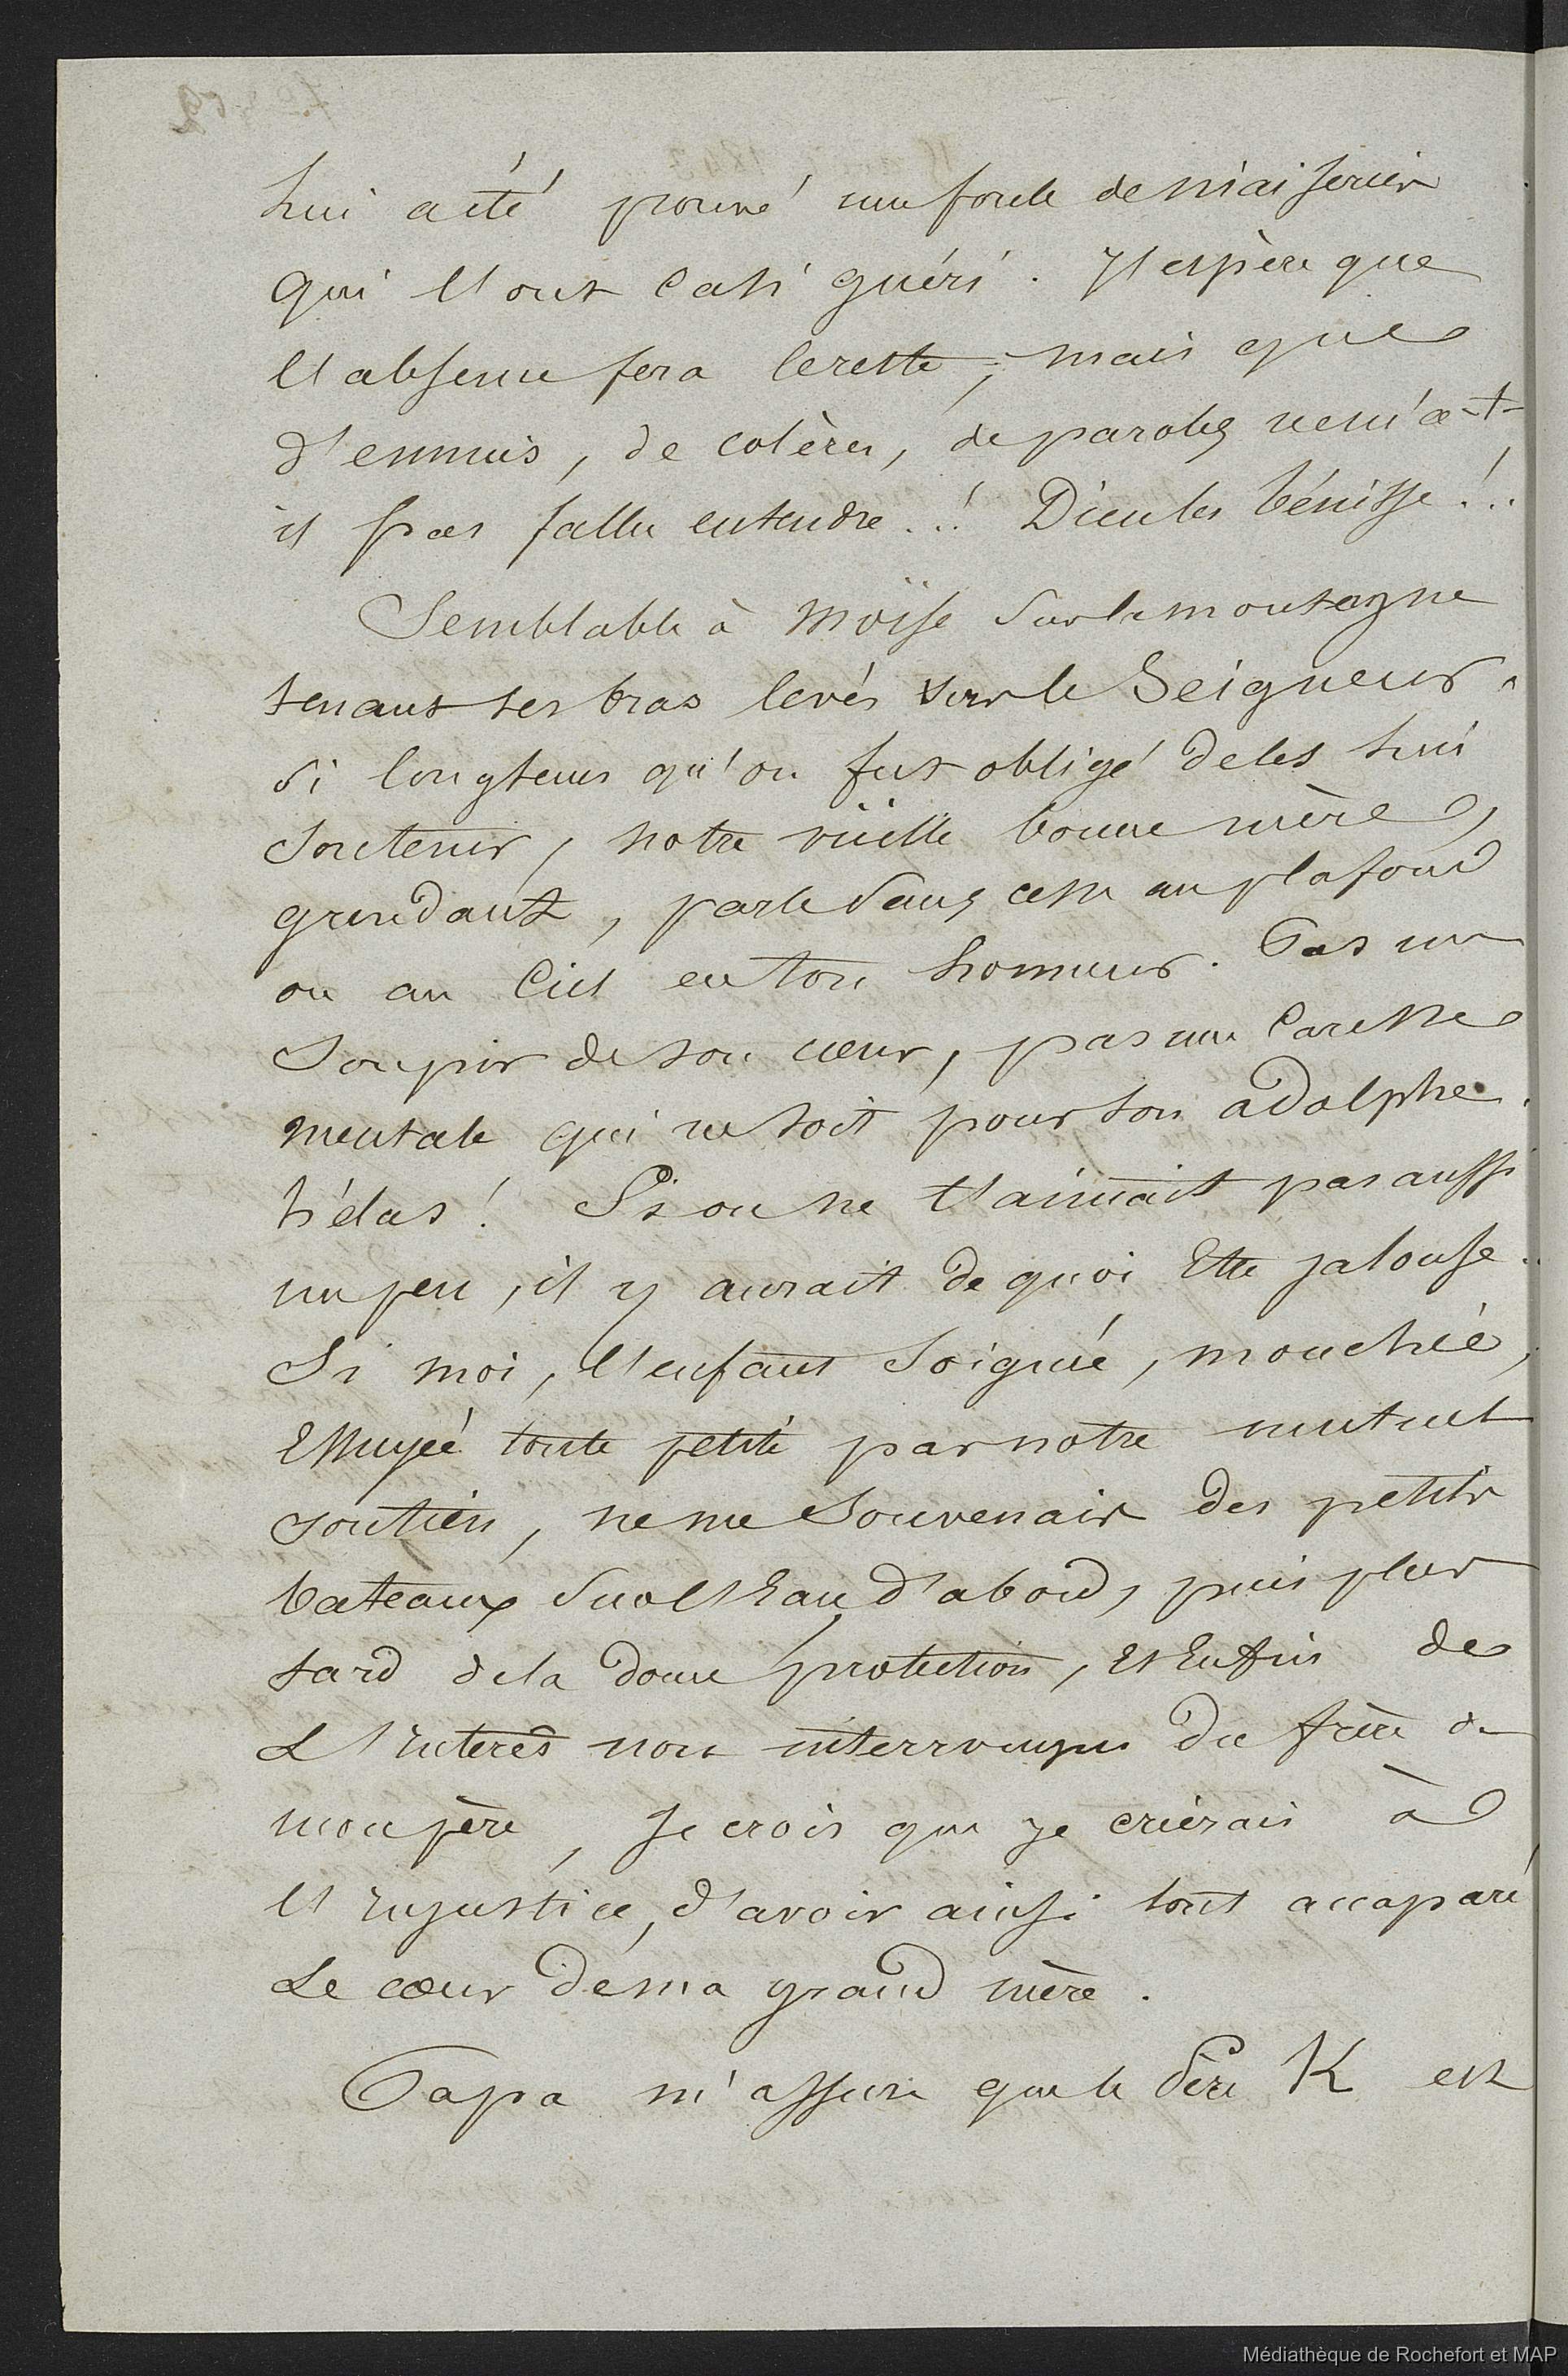 lui a été prouvé une foule de niaiseries
qui l'ont cassi guéri. J'espère que
l'absence fera le reste ; mais que
d'ennuis, de colères, de paroles ne m'a-t-
il pas fallu entendre..! Dieu les bénisse !..
Semblable à Moïse sur la montagne
tenant ses bras levés vers le Seigneur
si longtems qu'on fut obligé de les lui
soutenir, notre vieille bonne mère,
grondant, parle sans cesse au plafond
ou au Ciel en ton honneur. Pas un
soupir de son cœur, pas une caresse
mentale qui ne soit pour son adolphe.
hélas ! Si on ne t'aimait pas aussi
un peu, il y aurait de quoi Etre jalouse.
Si moi, l'enfant soigné, mouchée,
Essuyée toute petite par notre mutuel
soutien, ne me souvenais des petits
bateaux sur l'Eau d'abord, puis plus
tard de la douce protection, Et Enfin de
L'Interêt non interrompu du frère de
mon père, Je crois que je crierais à
l'Injustice, d'avoir ainsi tout accaparé
Le cœur de ma grand mère.
Papa m'assure que le Père K est
Médiathèque de Rochefort et MAP